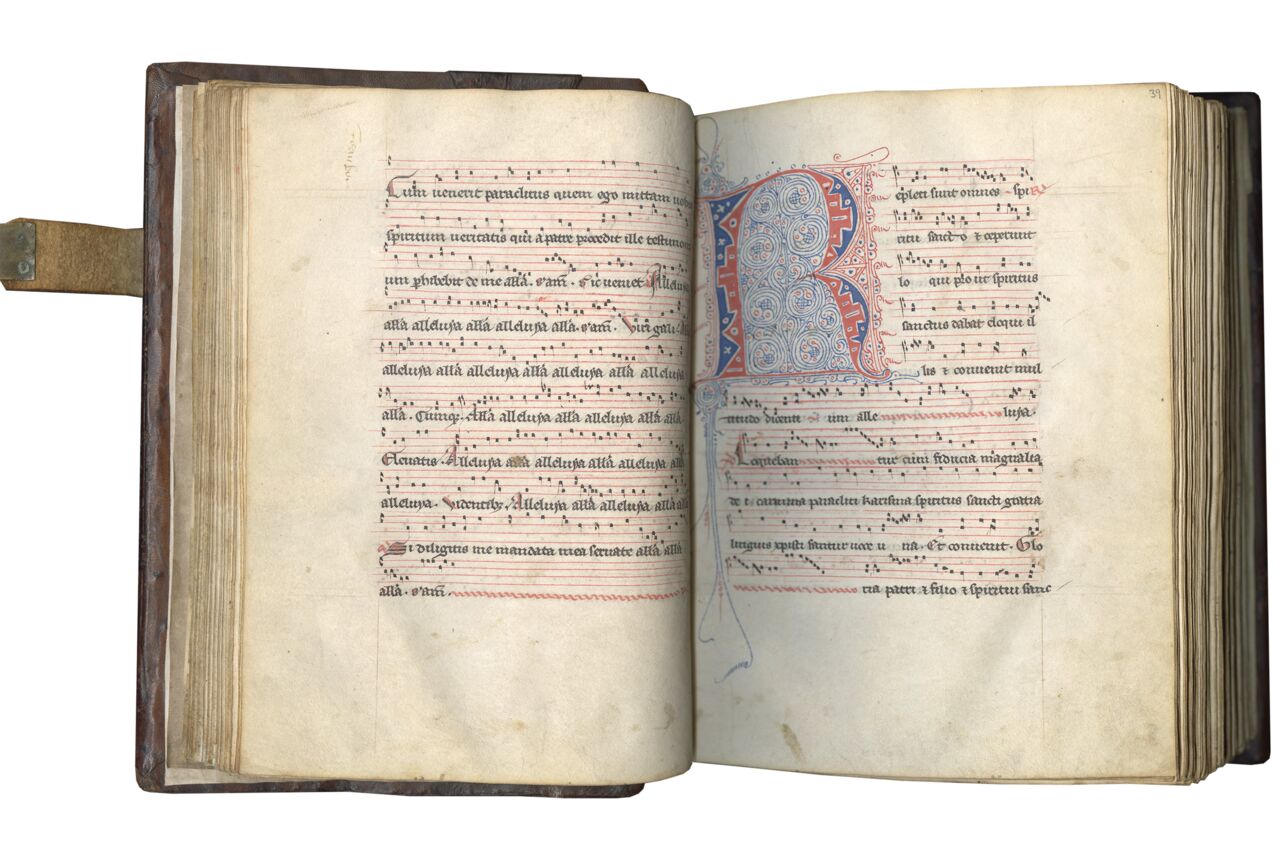 Cum uenerit paraclitus quem ego mittam uobis
spiritum ueritatis qui a patre procedit ille testimoni
um phibebit de me alla. s'am. Sic ueniet Alleluya
alla alleluya alla alleluya alla. s'am. Viri galil.
alleluya alla alleluya alla alleluya alla alleluya
alla. Cumq; Alla alleluya alla alleluya alla alla.
Eleuatis. Alleluya alla alleluya alla alleluya
alleluya. Videntibz. Alleluya alla alleluya alla alla
Si diligitis me mandata mea seruate alla alla
alla. s'am.
39
Repleti sunt omnes spi
ritu sancto & ceperunt
lo qui prout spiritus
sanctus dabat eloqui il
lis & conuenit mul
titudo dicenti um alle luya.
Loqueban tur cum fiducia magnalia
de i. carmina paracliti karisma spiritus sancti gratia
linguis xpisti fantur uoce u na. Et conuenit. Glo
ria patri & filio & spiritui sanc